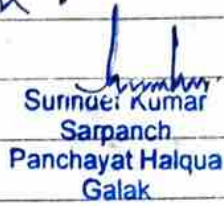 Surinder Kumar
Sarpanch
Panchayat Halqua
Galak